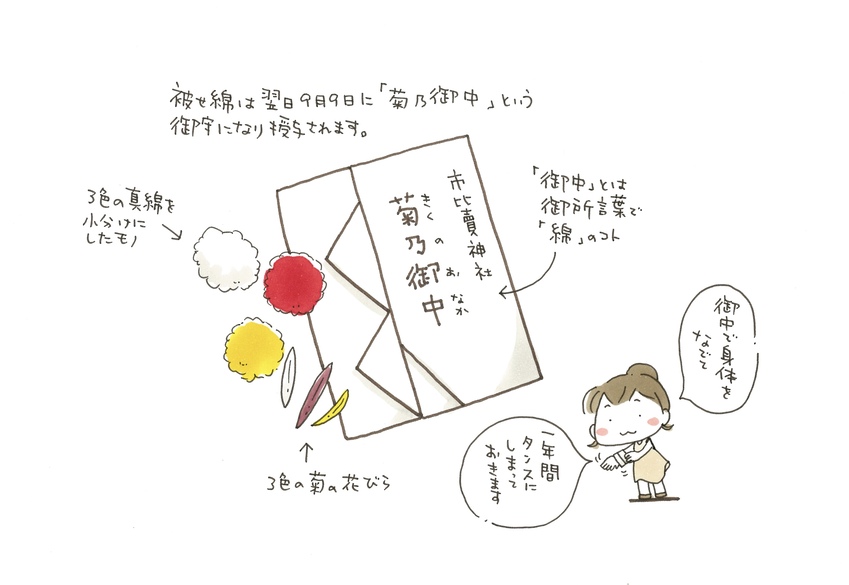 被せ綿は翌日9月9日に「菊乃御中」という
御守になり授与されます。
3色の真綿を
小分けに
したモノ
市比賣神社
菊乃御中
きくのおなか
「御中」とは
御所言葉で
「綿」のコト
御中で身体を
なでて
一年間
タンスに
しまって
おきます
3色の菊の花びら